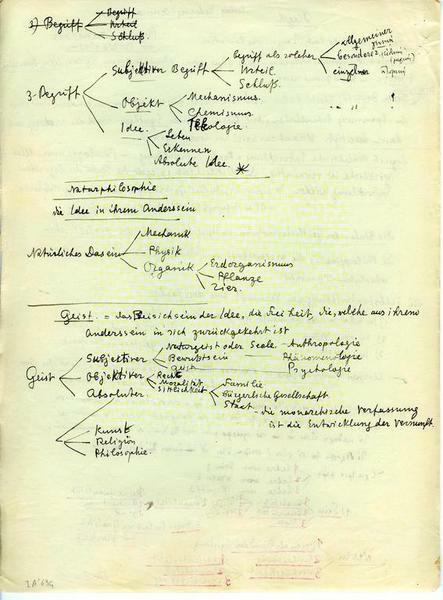 3) Begriff
Begriff
Urteil
Schluß
3. Begriff
Subjektiver Begriff
Begriff als solcher
allgemeiner
besonderer
einzelner
Urteil
Schluß.
Objekt
Mechanismus.
Chemismus
Teleologie
Idee.
Leben
Erkennen
Absolute Idee.
Naturphilosophie
die Idee in ihrem Anderssein
Natürliches Dasein
Mechanik
Physik
Organik
Erdorganismus
Pflanze
Tier.
Geist. = das Beisichsein der Idee, die Freiheit, die, welche aus ihrem
Anderssein in sich zurückgekehrt ist
Geist
Subjektiver
Naturgeist oder Seele - Anthropologie
Bewußtsein - Phänomenologie
Geist - Psychologie
Objektiver
Recht
Moralität
Sittlichkeit
Familie
Bürgerliche Gesellschaft
Staat - die monarchische Verfassung
ist die Entwicklung der Vernunft.
Absoluter.
Kunst
Religion
Philosophie.